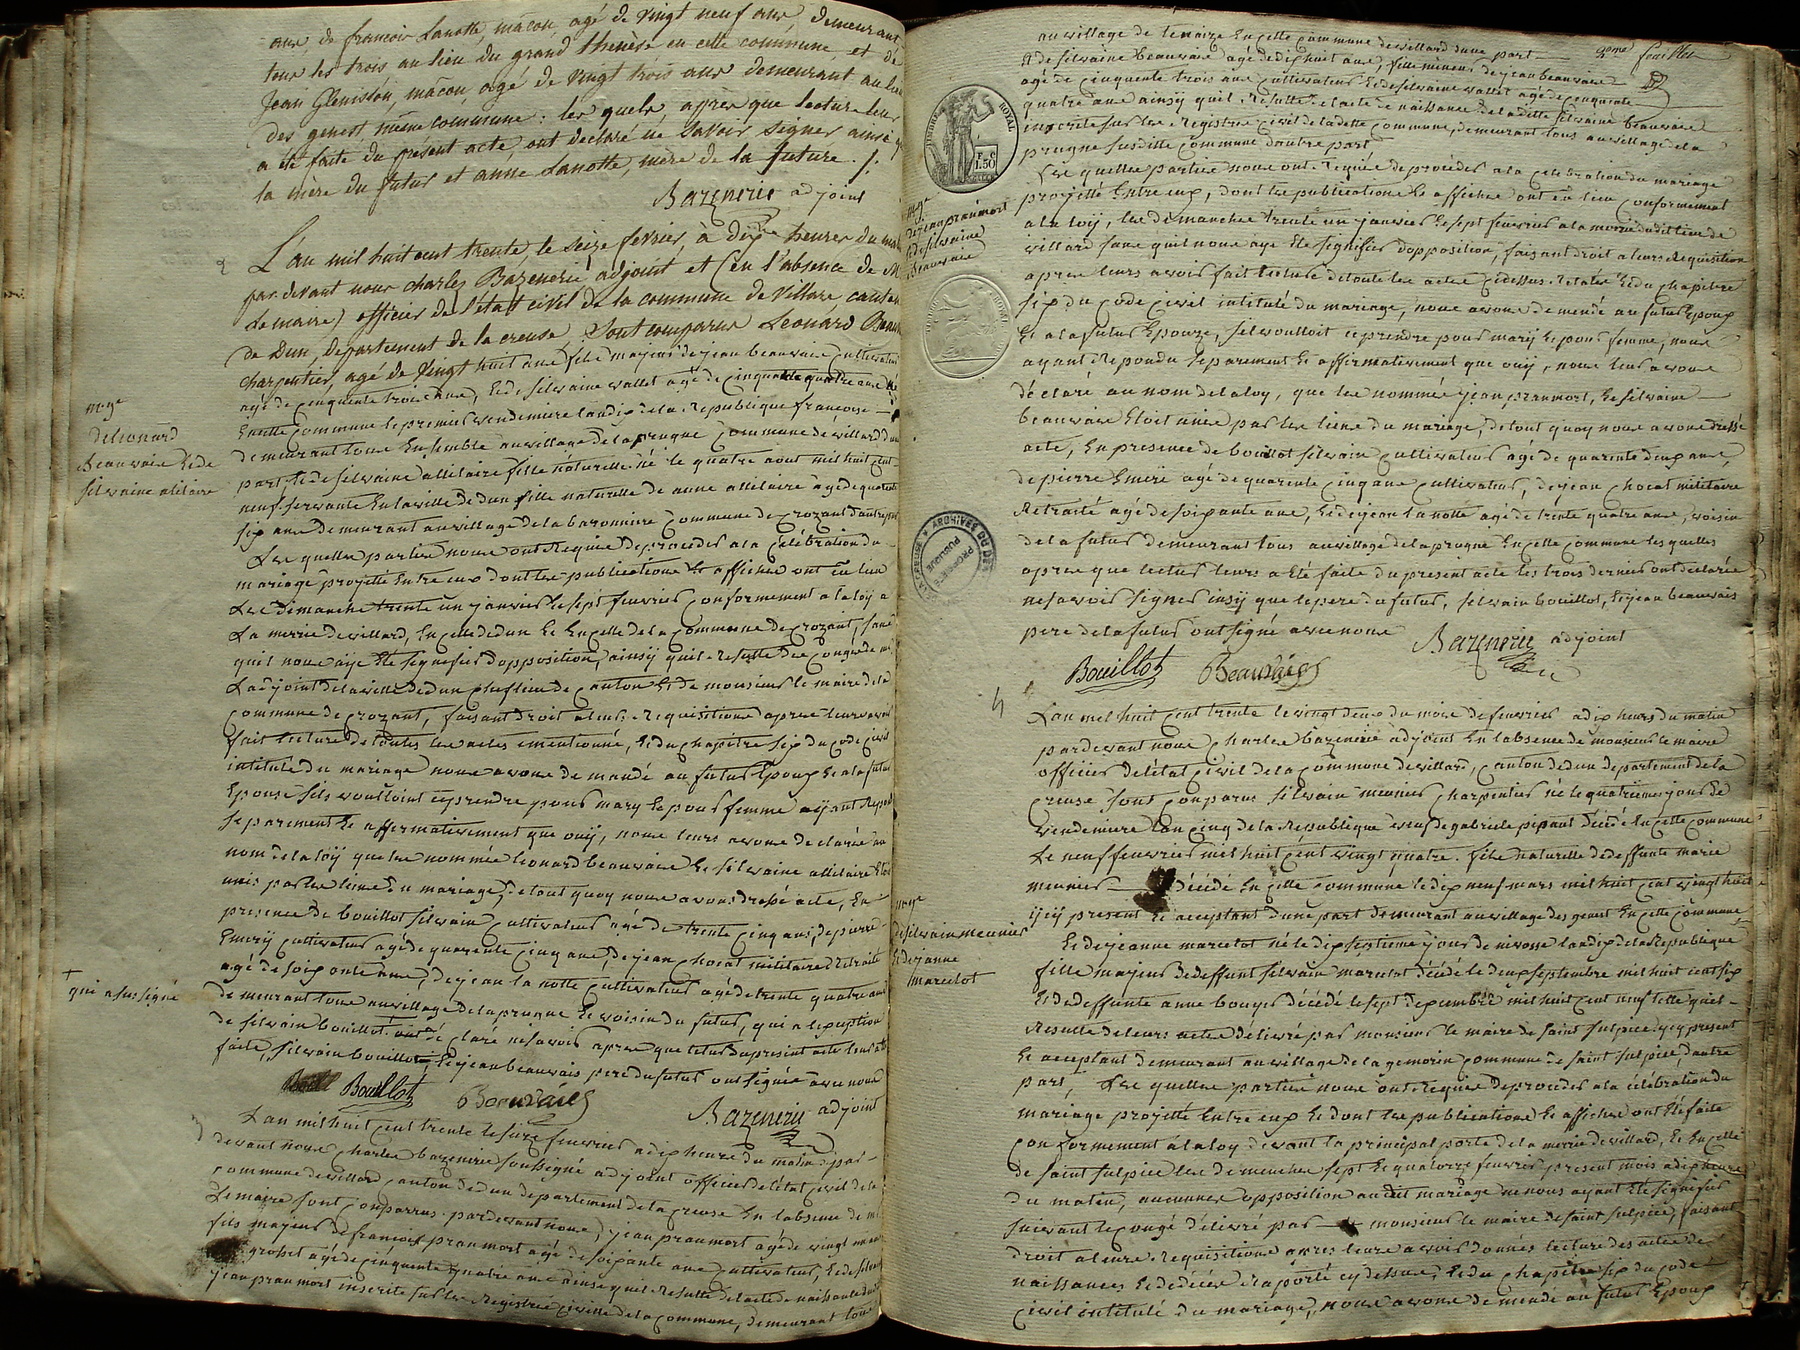 ans de francois Lanotte, maçon, agé de vingt neuf ans demeurant
tous les trois au lieu du grand thenèse en cette commune et de
Jean Glenisson, maçon, agé de vingt trois ans demeurant au lieu
des genest même commune : les quels, après que lecture leur
a été faite du présent acte, ont déclaré ne savoir signer ainsi q
la mère du futur et anne Lanotte, mère de la future ./.
Bazenerie adjoint
2
L'an mil huit cent trente, le seize fevrier, à dix heures du matin
par devant nous charles Bazenerie, adjoint et (en l'absence de M
Le maire) officier de l'état civil de la commune de Villare canton
de Dun, departement de la creuse, Sont comparus Léonard Beau
charpentier, agé de vingt huit ans fils majeur de jean beauvais Cultivateur
agé de cinquente trois ans, Et de silvaine vallet agé de cinquante quatre ans né
En cette Commune le premier vendemiere l'an dix de la Republique francoise
demeurant tous Ensemble au village de la prugne Commune de villard d'une
part, Et de silvaine allilaire fille naturelle né le quatre aout mil huit cent
neuf servante En la ville de dun fille naturelle de anne allilaire agé de quarente
six ans demeurant au village de la bazonniere Commune de Crozant d'autre part
Les quelles parties nous ont Requies de proceder a la Celébration du
mariage projetté Entre eux dont les publications Et affiches ont eu lieu
Les dimanches trente un janvier Et sept feuvrier Conformement a la loy a
La merrie de villard, En celle de dun Et En celle de la Commune de Crozant, sans
quil nous aÿe Eté signifier d'opposition, ainsÿ quil Resulte des Congés de mr
L'adjoint de la ville de dun cheflieu de Canton Et de monsieur le maire de la
Commune de Crozant, faisant droit a leurs Requisitions apres leurs avoir
fait lecture de toutes les actes cimentionné, Et du chapitre six du Code Civil
intitulé du mariage nous avons demandé au futur Epoux Et a la futur
Epouse sils vouloint ceprendre pour mary Et pour femme aÿant Repondu
separement Et affirmativement que ouÿ, nous leurs avons declaré au
nom de la loÿ que les nommée leonard beauvais Et silvaine allilaire Etoit
unis par les liens du mariage, de tout quoy nous avons dressé acte, En
presence de bouillot silvain Cultivateur agé de trente Cinq ans, de pierre
Emerÿ Cultivateur agé de quarente Cinq ans, de jean Chocat militaire Retraité
agé de soixonte ans, de jean la notte Cultivateur agé de trente quatre ans
demeurant tous au village de la prugne Et voisin du futur, qui a lexception
de silvain bouillot déclaré ne savoir apres que lectur du present acte leurs a eté
faite, silvain bouillot, Et jean beauvais pere du futur ont signés avec nous
Bouillot Beauvais
Bazenerie adjoint
moge
de leonard
Beauvais Et de
silvaine alilaire
+
qui a su signé
3
L'an mil huit Cent trente le seize feuvrier a dix heure du matin par-
devant nous Charles bazenerie soussigné adjoint officier de l'état Civil de la
Commune de villard Canton de dun departement de la Creuse En labsence de mr
Le maire sont Comparrus par devant nous, jean praumort agé de vingt
fils majeur de francois praumort agé de soixante ans Cultivateur, Et de
grozet agé de cinquente quatre ans ainsÿ quil Resulte de lacte de naissance dudit
jean praumort inscrite sur les Registres Civille de la Commune, demeurant tous
au village de Commune de villard d'une part
2eme feuillet
Et de silvaine beauvais agé de dix huit ans, fille mineur de jean beauvais
agé de Cinquente trois ans Cultivateur Et de silvaine vallet agé de Cinquente
quatre ans ainsÿ quil Resulte de lacte de naissance de ladite silvaine beauvais
inscrite sur les Registres Civil de ladette Commune, demeurant tous au village de la
prugne susditte Commune d'autre part
Les quelles parties nous ont Requiée de proceder a la Celebration du mariage
projetté Entre eux, dont les publications Et affiches ont eu lieu Conformement
a la loÿ, les dimanches trente un janvier Et sept feuvrier a la merrie dudit lieu de
villard sans quil nous aye Eté signifier d'opposition, faisant droit a leurs Requisition
apres leurs avoir fait lecture de toute les actes Cidessus Relatés Et du Chapitre
six du Code Civil intitulé du mariage, nous avons demendé au futur Epoux
Et a la futur Epouze, sil voulloit ceprendre pour marÿ Et pour femme, nous
ayant Repondu separement Et affirmativement que ouÿ, nous leur avons
déclaré au nom de la loy, que les nommé jean praumort, Et silvaine
beauvais Etoit unis par les liens du mariage, de tout quoy nous avons dressé
acte, En presence de bouillot silvain Cultivateur agé de quarente deux ans,
de pierre Emeri agé de quarente Cinq ans Cultivateur, de jean Chocat militaire
Retraité agé de soixante ans, Et de jean la notte agé de trente quatre ans, voisin
de la futur demeurant tous au village de la prugne En cette Commune les quelles
apres que lectur leurs a Eté faite du present acte les trois derniers ont declarée
ne savoir signer insÿ que le pere du futur, silvain bouillot, Et jean beauvais
pere de la futur ont signé avec nous
Bazenerie adjoint
Bouillot Beauvais
moge
de jean praumort
Et de silvaine
Beauvais
TIMBRE ROYAL
1.50
ARCHIVES DU DEPT
CREUSE
PROPRIÉTÉ PUBLIQUE
4
L'an mil huit Cent trente le vingt deux du mois de feuvrier a dix heurs du matin
pardevant nous Charles bazenerie adjoint En labsence de monsieur le maire
officier de l'état Civil de la Commune de villard, Canton de dun departement de la
Creuse sont Comparus silvain meunier Charpentier né le quatriemes jours de
vendemiere l'an Cinq de la Republique veuf de gabriele pipaut décédé En cette Commune
Le neuf feuvrier mil huit Cent vingt quatre. fils naturelle de deffunte marie
meunier décédé En cette Commune le dix neuf mars mil huit Cent vingt huit
ÿcÿ present Et aceptant d'une part demeurant au village des genest En cette Commune
Et de jeanne marcelot né le dix septieme jours de nivosse l'an dix de la Republique
fille majeur de deffunt silvain marcelot décédé le deux septembre mil huit cent six
Et de deffunte anne bouyer décédé le sept decembre mil huit cent neuf telle quil
Resulte de leurs actes delivré par monsieur le maire de saint sulpice ÿcy present
Et acceptant demeurant au village de la gemorin Commune de saint sulpice, d'autre
part, Les quelles parties nous ont Requiee de proceder a la célébration du
mariage projetté Entre eux Et dont les publications Et affiches ont Eté faite
Conformement a la loy devant la principal porte de la merrie de villard, Et En celle
de saint sulpice les dimenches sept Et quatorze feuvrier present mois a dix heure
du matin, aucunnes opposition au dit mariage ne nous ayant Eté signifier
suivant le Congé délivré par monsieur le maire de saint sulpice, faisant
droit a leurs Requisitions apres leurs avoir données lecture des actes de
naissances Et de décès raporté cy dessus, Et du Chapitre six du code
Civil intitulé du mariage, nous avons demendé au futur Epoux
moge
de silvain meunier
Et de janne
marcelot